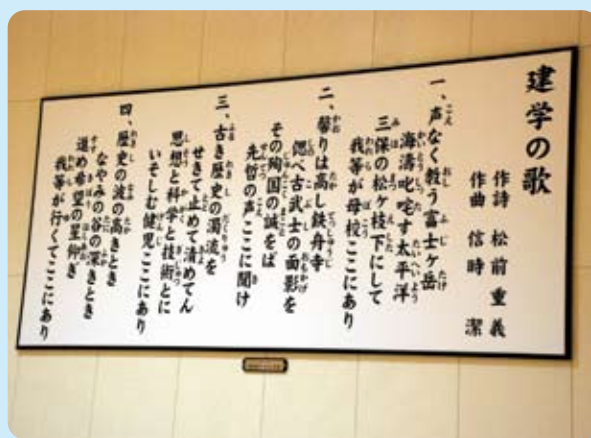 建学の歌
作詩 松前重義
作曲 信時 潔
一、声なく教う富士ヶ岳
海濤叱咤す太平洋
三保の松ヶ枝下にして
我等が母校ここにあり
二、馨りは高し鉄舟寺
偲べ古武士の面影を
その殉国の誠をば
先哲の声ここに聞け
三、古き歴史の濁流を
せきて止めて清めてん
思想と科学と技術とに
いそしむ健児ここにあり
四、歴史の波の高きとき
なやみの谷の深きとき
進め希望の星仰ぎ
我等が行くてここにあり